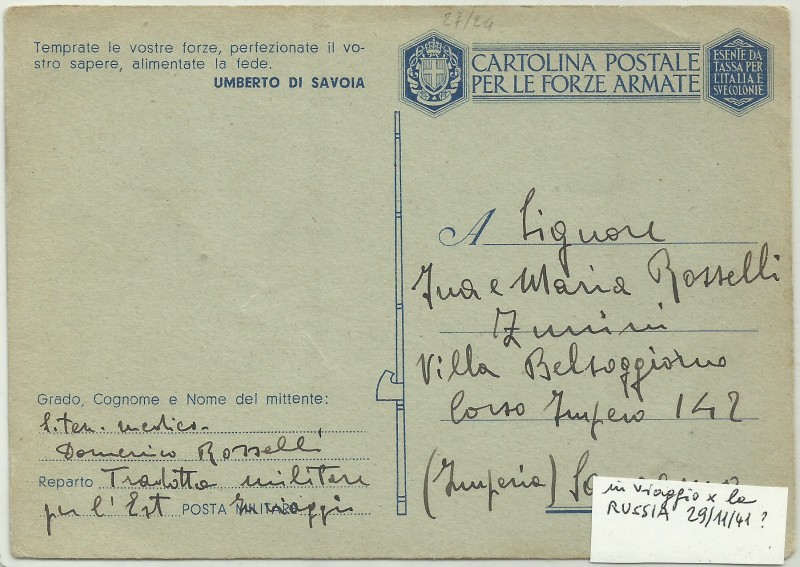 27/24
Temprate le vostre forze, perfezionate il vo-
stro sapere, alimentate la fede.
UMBERTO DI SAVOIA
CARTOLINA POSTALE
PER LE FORZE ARMATE
ESENTE DA
TASSA PER
L'ITALIA E
SVE COLONIE
A Signore
Ina e Maria Rosselli
Zunini
Villa Belsoggiorno
Corso Impero 142
(Imperia)
Grado, Cognome e Nome del mittente:
S. Ten. medico
Domenico Rosselli
Reparto Tradotta militare
per l'Est POSTA MILITARE In viaggio
in viaggio x la
RUSSIA 29/11/41?